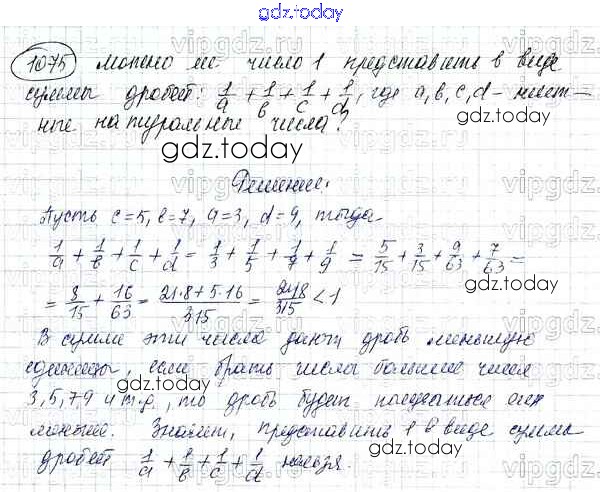 gdz.today
1075 можно ли число 1 представить в виде
суммы дробей: 1/a + 1/b + 1/c + 1/d, где a, b, c, d - нечет-
ные натуральные числа?
gdz.today
Решение.
Пусть c=5, b=7, a=3, d=9, тогда
1/a + 1/b + 1/c + 1/d = 1/3 + 1/5 + 1/7 + 1/9 = 5/15 + 3/15 + 9/63 + 7/63 =
= 8/15 + 16/63 = 21·8+5·16/315 = 248/315 < 1
В сумме эти числа дают дробь меньшую
единицы, если брать числа больше чем
gdz.today
3, 5, 7, 9 и т.д., то дробь будет получаться еще
меньше. Значит, представить 1 в виде суммы
дробей 1/a + 1/b + 1/c + 1/d нельзя.
gdz.today